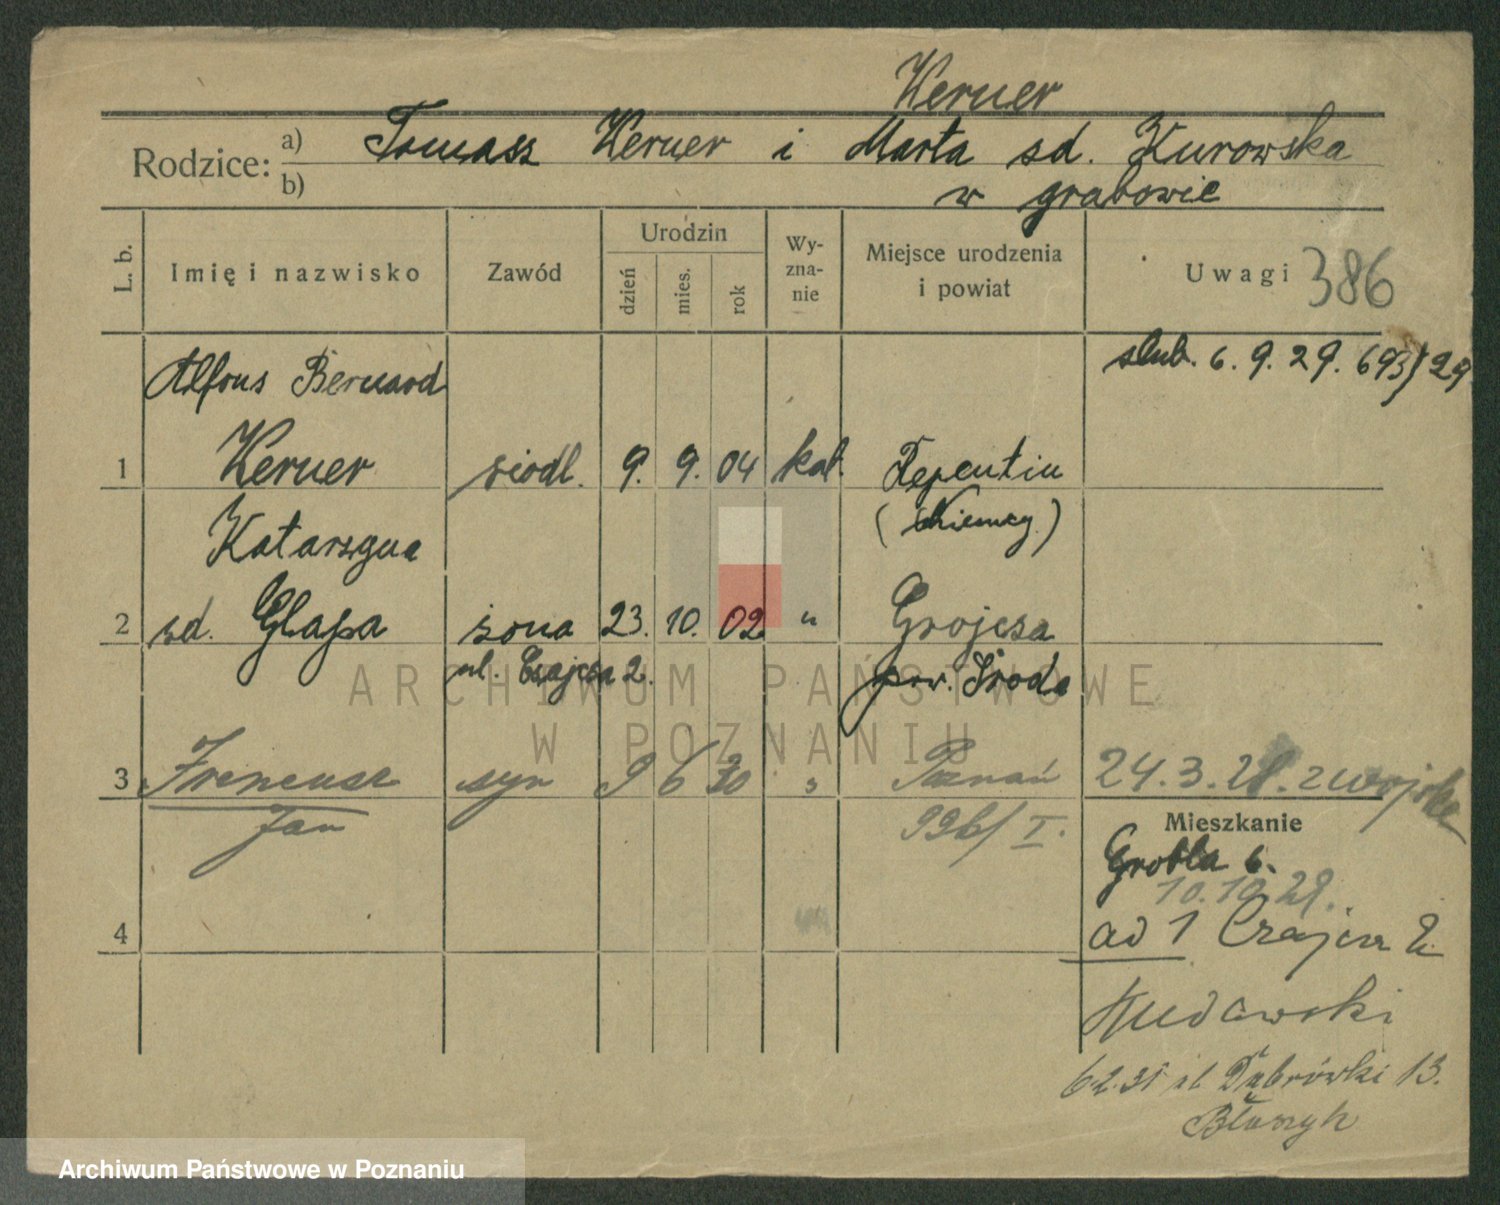 Kerner
Rodzice: a) Tomasz Kerner i Marta zd. Kurowska
b) w Grabowie
L. b. Imię i nazwisko Zawód Urodzin dzień mies. rok Wy-zna-nie Miejsce urodzenia i powiat Uwagi 386
ślub. 6. 9. 29. 693/29
Alfons Bernard
1 Kerner siodl. 9. 9. 04 kat. Repentin
(Niemcy.)
Katarzyna
2 zd. Glapa żona 23. 10. 02 " Grojcza
ul. Czajcza 2. pow. Środa
ARCHIWUM PAŃSTWOWE
W POZNANIU
3 Ireneusz syn 9 6 30 " Poznań 24. 3. 28. z wojska
Jan 996/I.
Mieszkanie
Grobla 6.
10. 10 29.
4 ad 1 Czajcza 2
6 2. 31 ul Dąbrówki 13.
Błaszyk
Archiwum Państwowe w Poznaniu